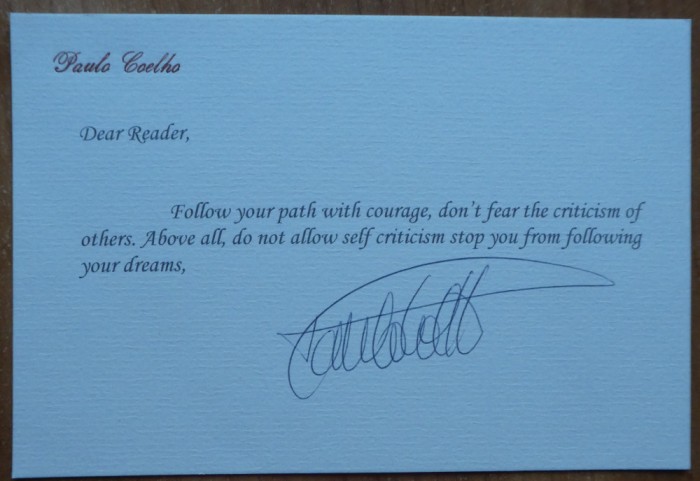 Paulo Coelho
Dear Reader,
Follow your path with courage, don't fear the criticism of
others. Above all, do not allow self criticism stop you from following
your dreams,